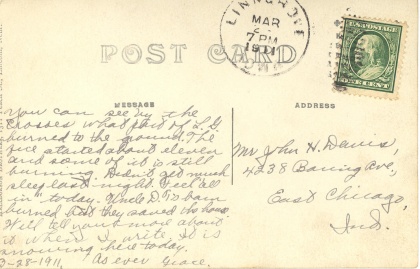 LINN GROVE
MAR
7 PM
1911
IOWA
POST CARD
MESSAGE
ADDRESS
You can see by the
crosses what part of L.G.
burned to the ground. The
fire started about eleven
and some of it is still
burning. Didn't get much
sleep last night. Feel all
in "today. Uncle D.'s barn
burned but they saved the house.
Will tell you more about
it when I write. It is
snowing here today.
3-28-1911. As ever Grace.
Mr John H. Davis,
4238 Baring Ave.,
East Chicago,
Ind.